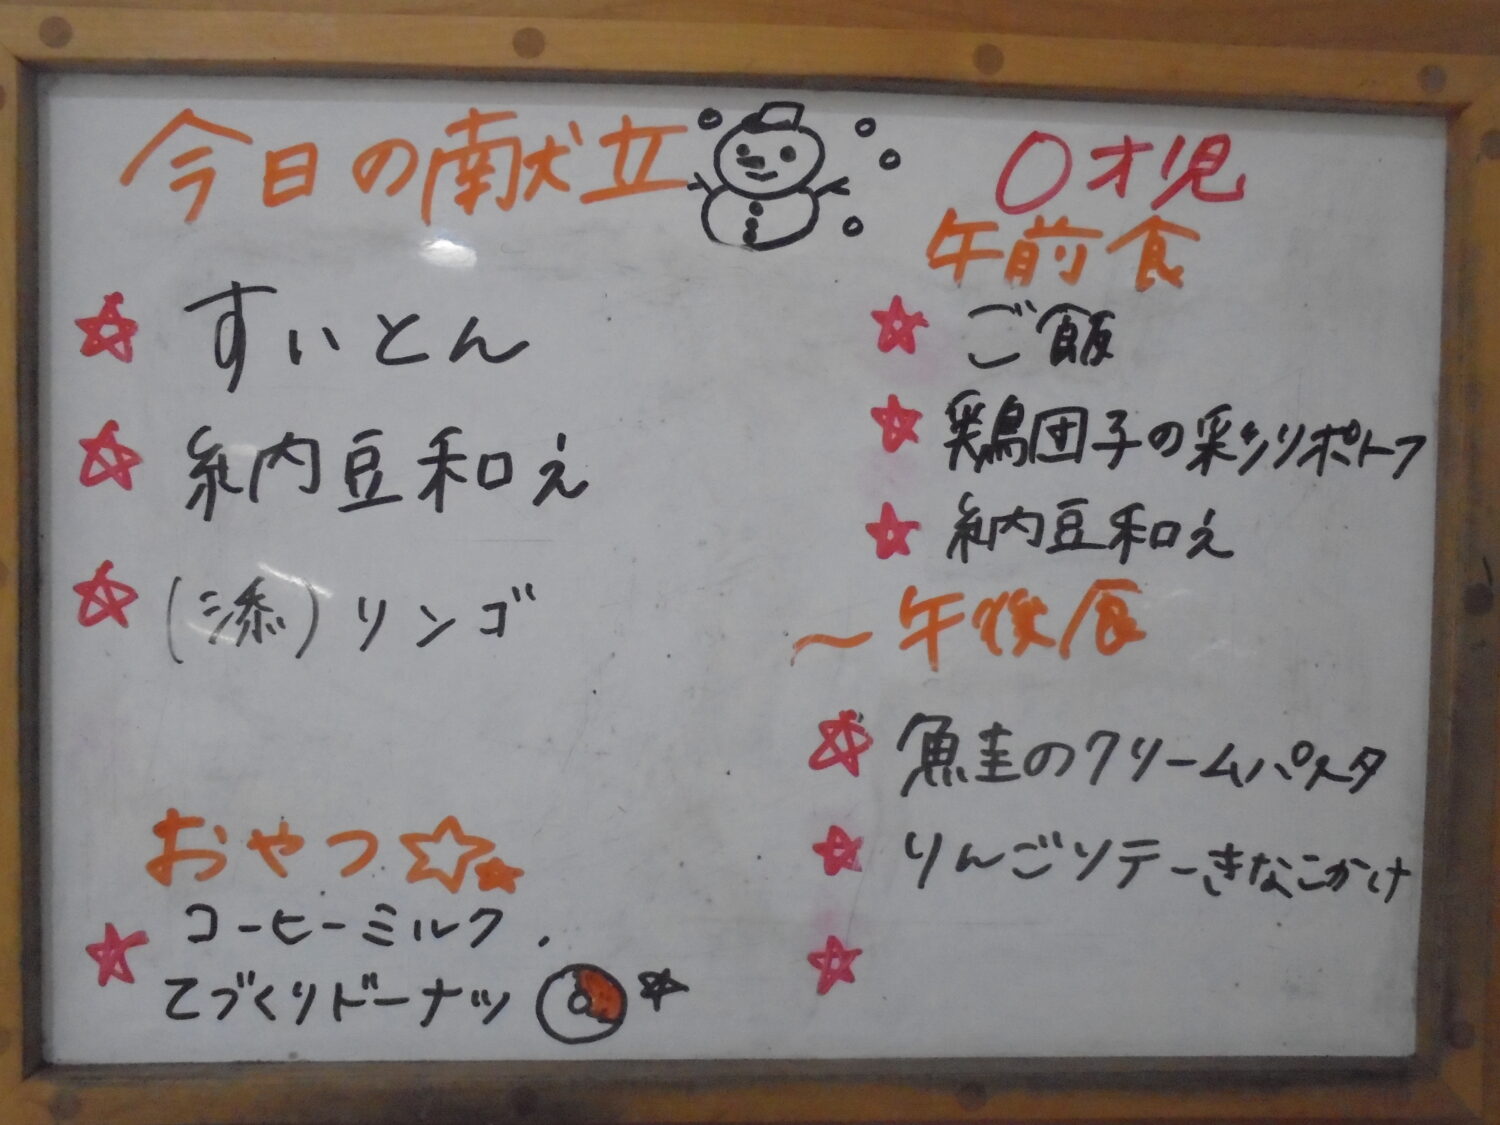 今日の献立
すいとん
納豆和え
(添)リンゴ
おやつ
コーヒーミルク.
てづくりドーナツ
〇才児
午前食
ご飯
鶏団子の彩りポトフ
納豆和え
〜午後食
鮭のクリームパスタ
りんごソテーきなこかけ